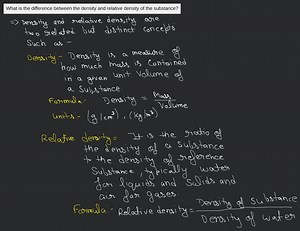 What is the difference between the density and relative density of the substance?
⇒ Density and relative density are
two related but distinct concepts
Such as -
Density - Density is a measure of
how much mass is Contained
in a given unit Volume of
a Substance
Formula - Density = Mass / Volume
Units - (g/cm³), (kg/m³)
Relative density = It is the ratio of
the density of a Substance
to the density of reference
Substance, typically water
for liquids and Solids and
air for gases
Formula - Relative density = Density of Substance / Density of water